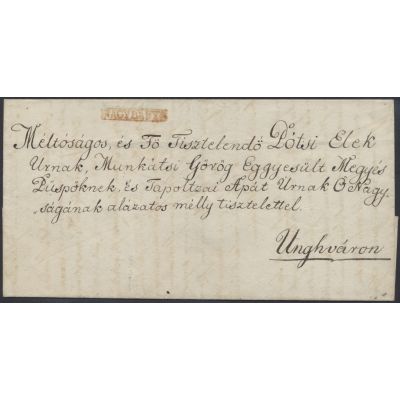 NAGYBÁNYA
Méltóságos, és Fö Tisztelendő Pótsi Elek
Urnak, Munkátsi Görög Eggyesült Megyés
Püspöknek, és Tapoltzai Apát Urnak Ő Nagy-
ságának alázatos mélly tisztelettel.
Unghváron